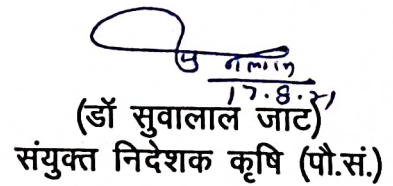 17.8.21
(डॉ सुवालाल जाट)
संयुक्त निदेशक कृषि (पौ.सं.)